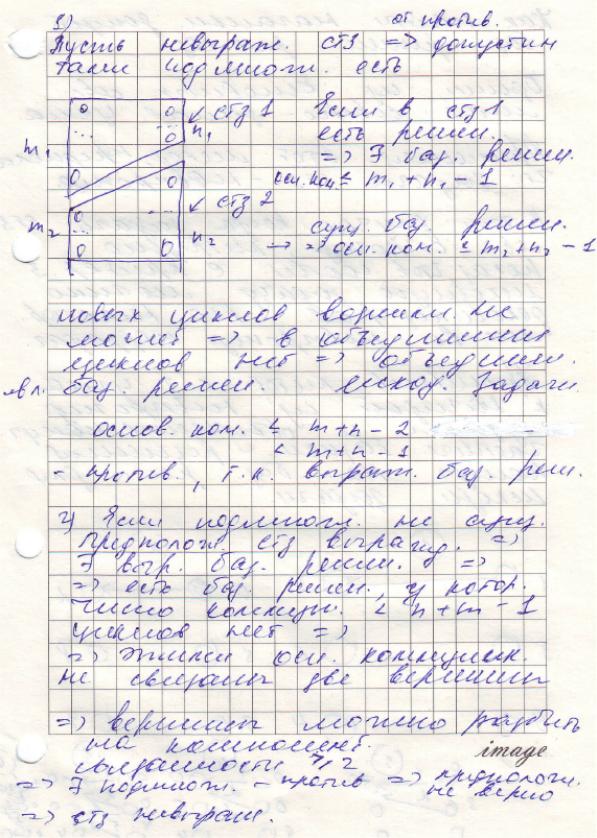 1) от против.
Пусть невыраж. стз => допустим
такие подмнож. есть
стз 1
Если в стз 1
есть решен.
m1
n1
=> ∃ баз. решен.
осн. ком. ≤ m1 + n1 - 1
стз 2
m2
n2
сущ. баз. решен.
=> осн. ком. ≤ m2 + n2 - 1
новых циклов возникн. не
может => в объединении
циклов нет => объедин.
явл. баз. решен. исход. задачи.
основ. ком. ≤ m+n-2
< m+n-1
- против., т.к. выраж. баз. реш.
2) Если подмнож. не сущ.
предполож. стз выражд. =>
∃ выр. баз. решен. =>
=> есть баз. решен., у котор.
число коммун. < n+m-1
циклов нет =>
=> этими осн. коммуник.
не связаны две вершины
=> вершины можно разбить
на компонент.
связанности 1, 2
image
=> ∃ подмнож. - против => предполож.
не верно
=> стз невыраж.